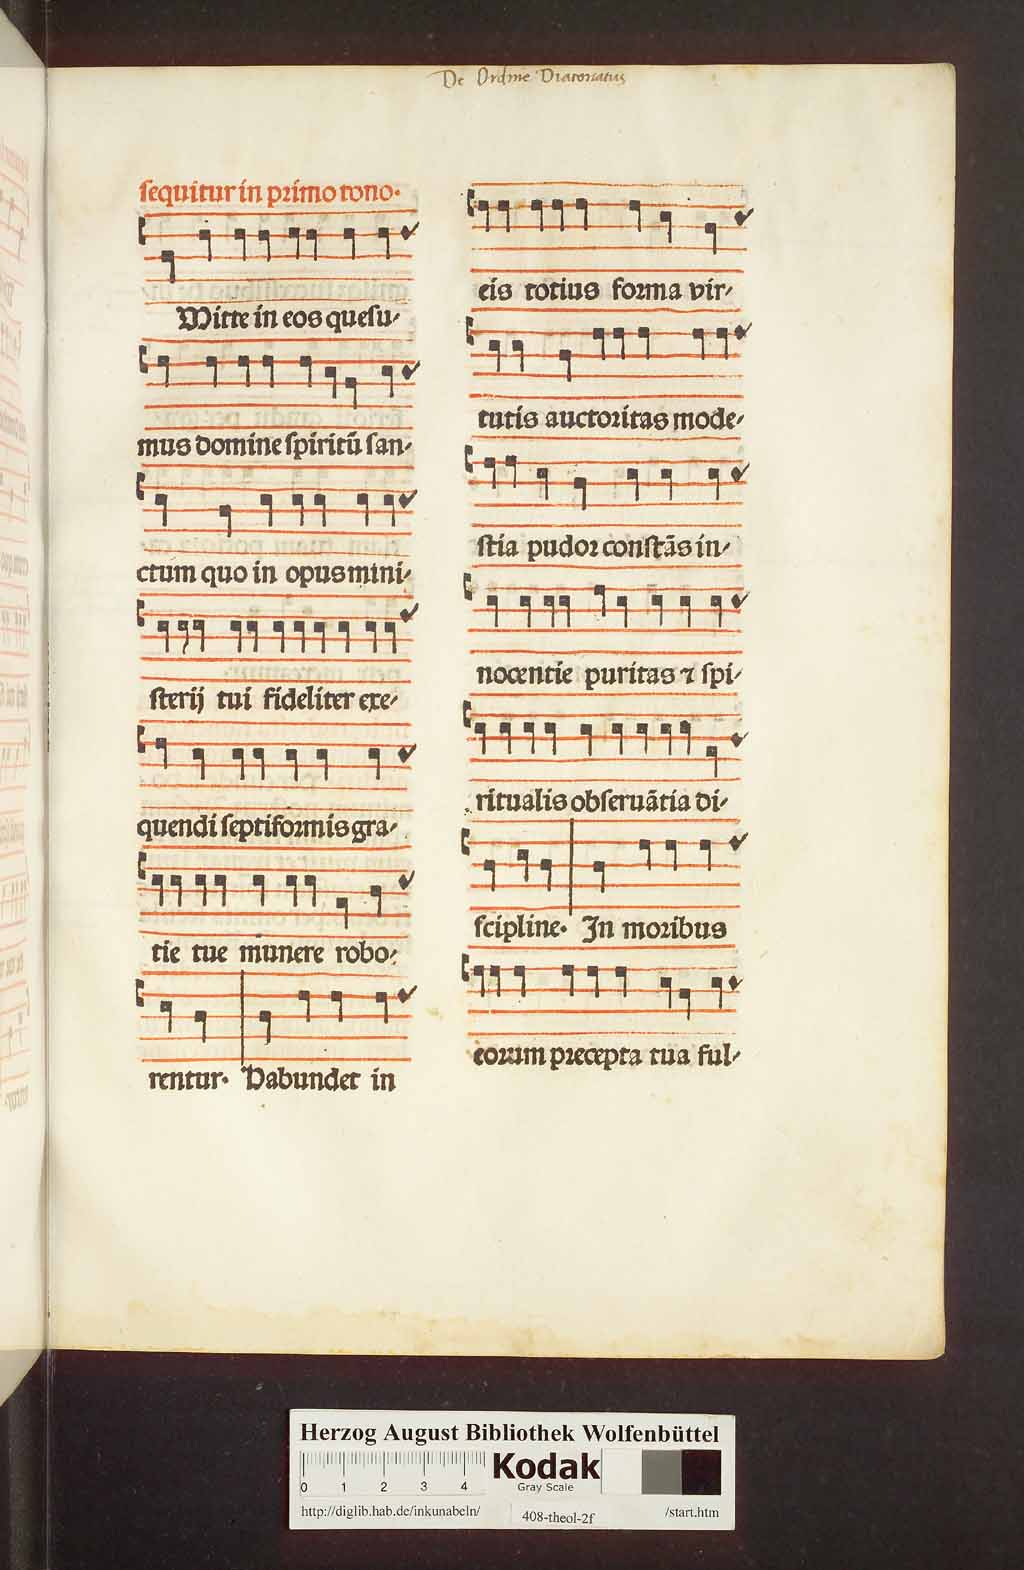 De Ordine Diaconatus
sequitur in primo tono.
Mitte in eos quesu-
mus domine spiritū san-
ctum quo in opus mini-
sterij tui fideliter exe-
quendi septiformis gra-
tie tue munere robo-
rentur. Dabundet in
eis totius forma vir-
tutis auctoritas mode-
stia pudor constās in-
nocentie puritas ⁊ spi-
ritualis obseruātia di-
scipline. In moribus
eorum precepta tua ful-
Herzog August Bibliothek Wolfenbüttel
Kodak
Gray Scale
0 1 2 3 4
http://diglib.hab.de/inkunabeln/ 408-theol-2f /start.htm